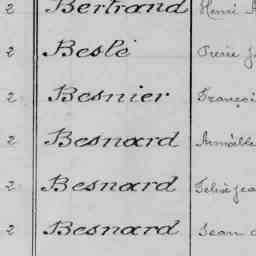 2 Bertrand Henri
2 Beslé Pierre
2 Besnier François
2 Besnard Armelle
2 Besnard Félix Jea
2 Besnard Jean